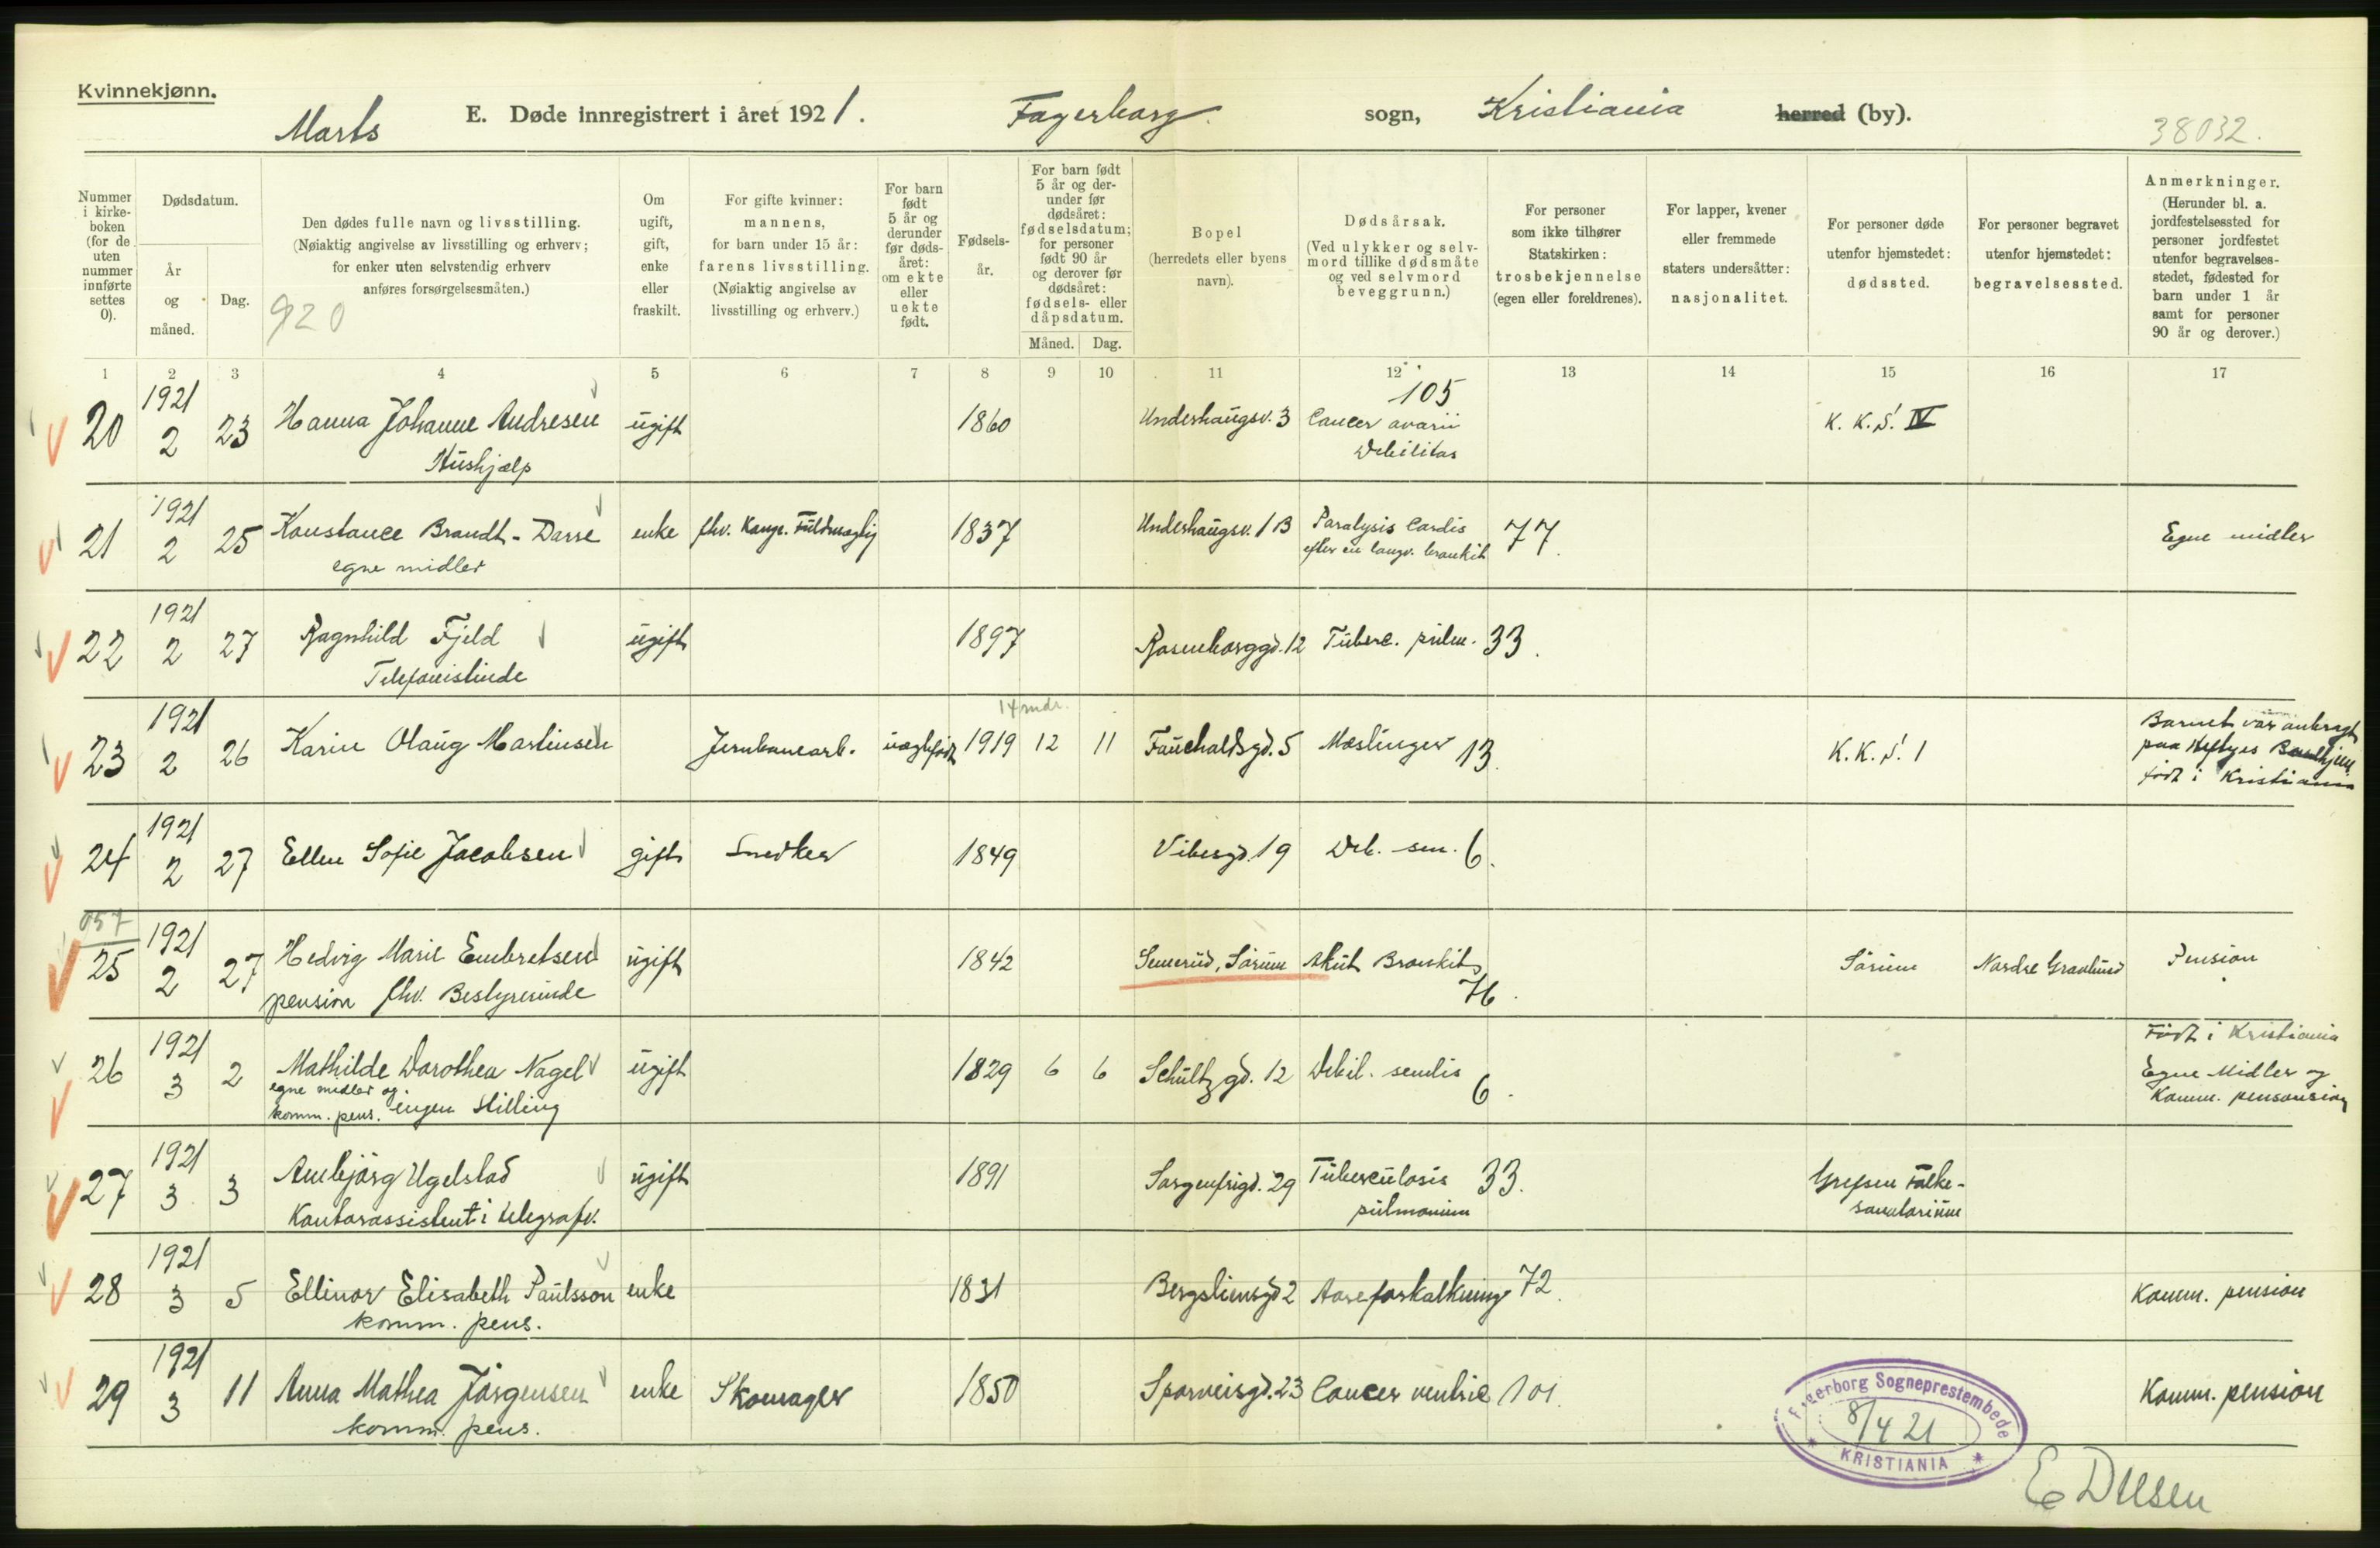 Kvinnekjønn.
Marts
E. Døde innregistrert i året 1921.
Fagerborg. sogn, Kristiania herred (by).
38032.
Nummer i kirke-boken (for de uten nummer innførte settes 0).
Dødsdatum.
År og måned.
Dag.
Den dødes fulle navn og livsstilling.
(Nøiaktig angivelse av livsstilling og erhverv;
for enker uten selvstendig erhverv
anføres forsørgelsesmåten.)
920
Om ugift, gift, enke eller fraskilt.
For gifte kvinner: mannens,
for barn under 15 år:
farens livsstilling.
(Nøiaktig angivelse av
livsstilling og erhverv.)
For barn født 5 år og derunder før døds-året: om ekte eller uekte født.
Fødsels-år.
For barn født 5 år og der-under før dødsåret: fødselsdatum; for personer født 90 år og derover før dødsåret: fødsels- eller dåpsdatum.
Måned. Dag.
Bopel
(herredets eller byens navn).
Dødsårsak.
(Ved ulykker og selv-mord tillike dødsmåte og ved selvmord beveggrunn.)
For personer som ikke tilhører Statskirken: trosbekjennelse (egen eller foreldrenes).
For lapper, kvener eller fremmede staters undersåtter: nasjonalitet.
For personer døde utenfor hjemstedet: dødssted.
For personer begravet utenfor hjemstedet: begravelsessted.
Anmerkninger.
(Herunder bl. a. jordfestelsessted for personer jordfestet utenfor begravelses-stedet, fødested for barn under 1 år samt for personer 90 år og derover.)
1 2 3 4 5 6 7 8 9 10 11 12 13 14 15 16 17
20 1921 2 23 Hanna Johanne Andresen ugift 1860 Underhaugsv. 3 105 Cancer ovarii K. K. S. IV
Hushjælp Debilitas
21 1921 2 25 Konstance Brandt-Dasse enke fhv. Fuldmægtig 1837 Underhaugsv. 1 B Paralysis Cordis 77. Egne midler
egne midler efter en langv. bronkit
22 1921 2 27 Ragnhild Fjeld ugift 1897 Rosenborggd. 12 Tuberc. pulm. 33.
Telefonistinde
14 mdr.
23 1921 2 26 Karin Olaug Martinsen Jernbanearb. uægtefødt 1919 12 11 Fauchaldsgd. 5 Mæslinger 13. K. K. S. 1 Barnet var anbragt
paa Heftyes Barnehjem
født i Kristiania
24 1921 2 27 Ellen Sofie Jacobsen gift Snedker 1849 Vibesgd. 19 Deb. sen. 6.
057
25 1921 2 27 Hedvig Marie Embretsen ugift 1842 Semerud, Sørum Akut Bronkit 76. Sørum Nordre Gravlund Pension
pension fhv. Bestyrerinde
26 1921 3 2 Mathilde Dorothea Nagel ugift 1829 6 6 Schultzgd. 12 Debil. senilis 6. Født i Kristiania
egne midler og
komm. pens. ingen stilling
Egne Midler og
Komm.
27 1921 3 3 Ambjørg Ugelstad ugift 1891 Sorgenfrigd. 29 Tuberculosis 33. Grefsen Folke-
Kontorassistent i telegrafv. pulmonum sanatorium
28 1921 3 5 Ellinor Elisabeth Paulsson enke 1831 Bergsliensgd 2 Aareforkalkning 72. Komm. pension
komm. pens.
29 1921 3 11 Anna Mathea Jørgensen enke Skomager 1850 Sporveisgd. 23 Cancer ventric 101. Komm. pension
komm. pens.
Fagerborg Sogneprestembede
8/4 21
* KRISTIANIA *